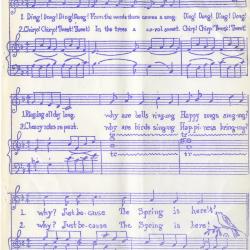 1. Ding! Dong! Ding! Dong! From the woods there comes a song: Ding! Dong! Ding! Dong!
2. Chirp! Chirp! Tweet! Tweet! In the trees a carol sweet: Chirp! Chirp! Tweet! Tweet!
1. Ringing all day long, why are bells ringing Happy songs singing!
why are birds singing Happiness bringing?
tr tr tr
1. why? Just be-cause The Spring is here!
2. why? Just be-cause The Spring is here!